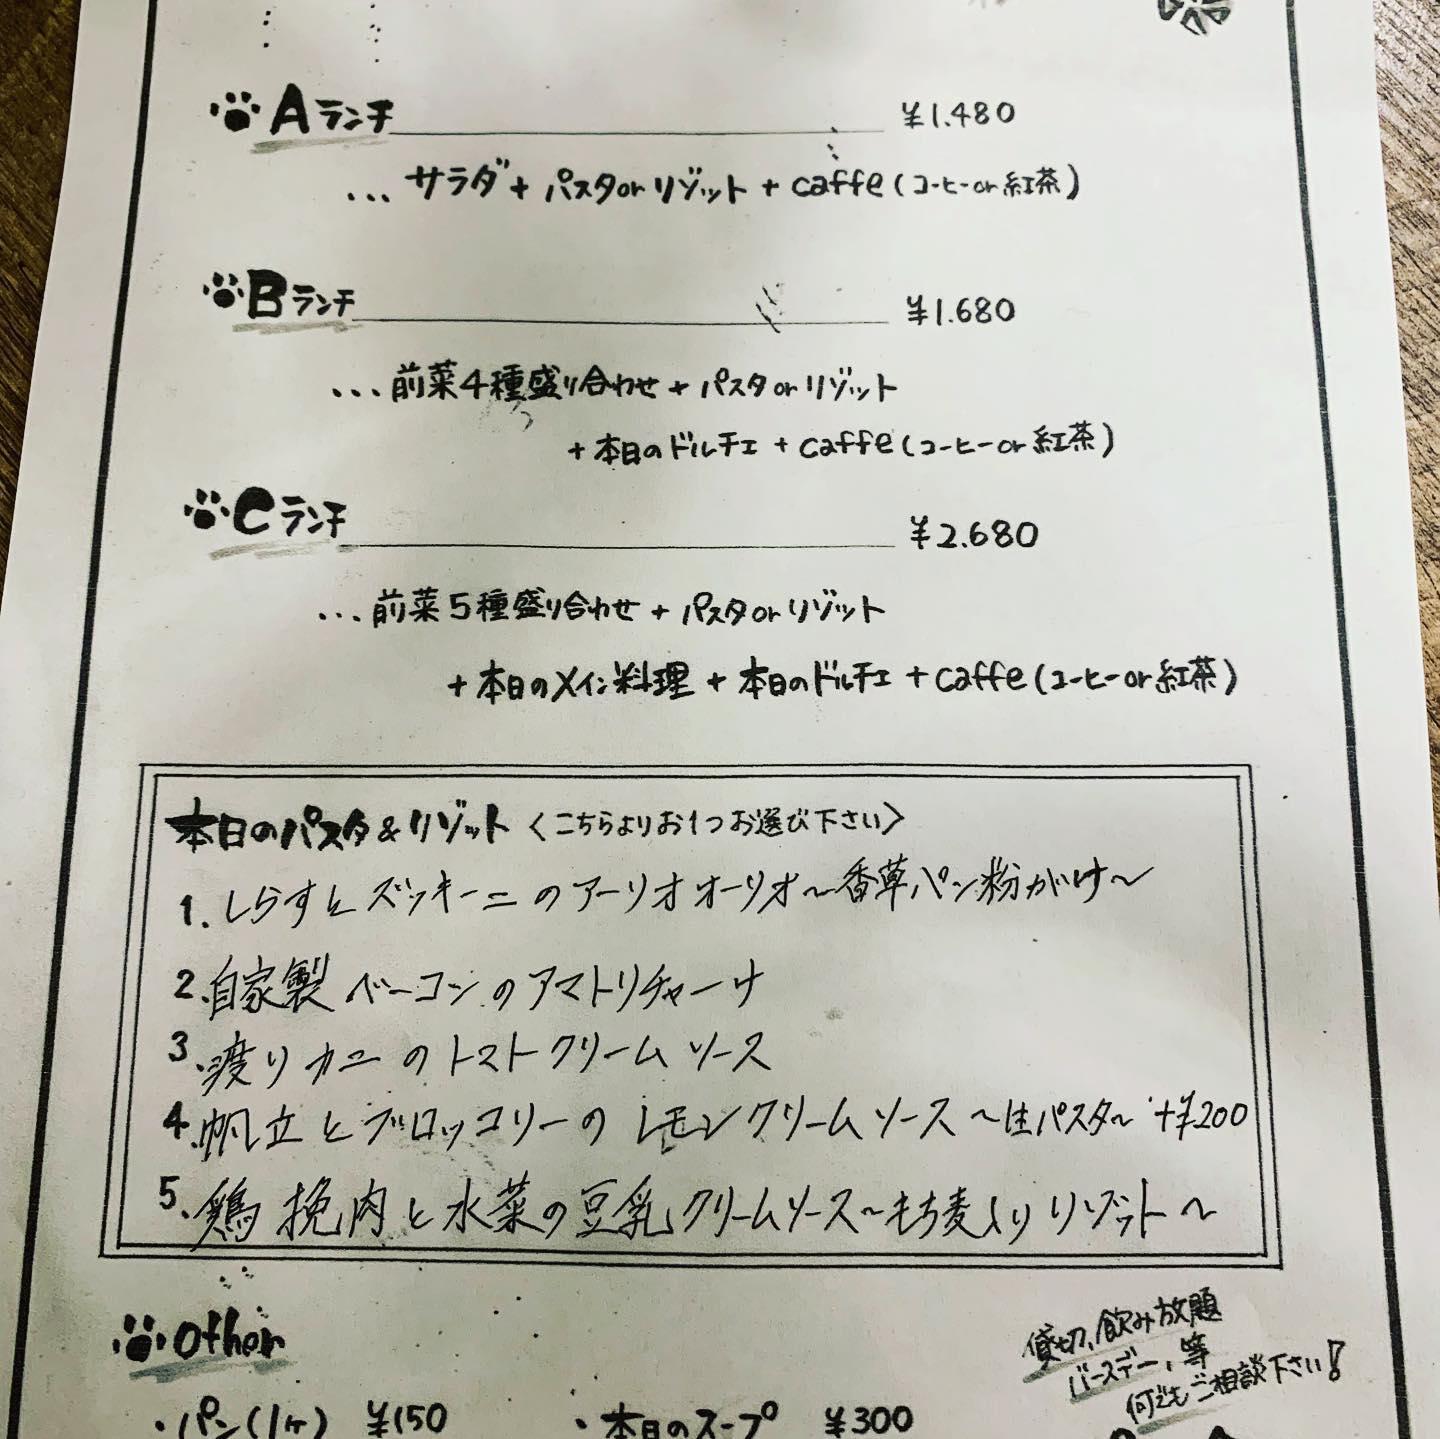 Aランチ ¥1.480
...サラダ+パスタorリゾット+caffe(コーヒーor紅茶)
Bランチ ¥1.680
...前菜4種盛り合わせ+パスタorリゾット
+本日のドルチェ+caffe(コーヒーor紅茶)
Cランチ ¥2.680
...前菜5種盛り合わせ+パスタorリゾット
+本日のメイン料理+本日のドルチェ+caffe(コーヒーor紅茶)
本日のパスタ&リゾット〈こちらよりお1つお選び下さい〉
1.しらすとズッキーニのアーリオオーリオ〜香草パン粉がけ〜
2.自家製ベーコンのアマトリチャーナ
3.渡りカニのトマトクリームソース
4.帆立とブロッコリーのレモンクリームソース〜生パスタ〜 +¥200
5.鶏挽肉と水菜の豆乳クリームソース〜もち麦入りリゾット〜
other
貸切、飲み放題
バースデー、等
何でもご相談下さい!
・パン(1ヶ) ¥150 ・本日のスープ ¥300